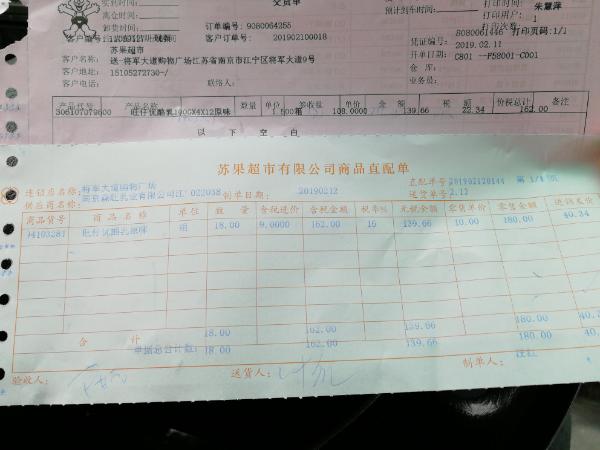 交货单
打印时间:
预计到车时间:
打印用户: 朱慧萍
打印次数: 1
实到时间:
离仓时间:
卸货时间:
订单编号: 9080064255
客户订单号: 201902100018
8080061446 打印页码:1/1
凭证编号: 2019.02.11
开单日期: C801 --P58001-C001
仓 库:
业务员:
苏果超市
客户名称: 送-将军大道购物广场江苏省南京市江宁区将军大道9号
客户地址: 15105272730-/
客户电话:
联络人:
产品代号 产品名称 数量 单位 签收量 单价 金额 税额 价税总计 备注
306107079600 旺仔优酪乳190GX4X12原味 1.500箱 108.0000 139.66 22.34 162.00
以 下 空 白
苏果超市有限公司商品直配单
连锁店名称: 将军大道购物广场
直配单号: 201902120144 第 1/1 页
供应商名称: 022038 制单日期: 20190212 送货单号: 2.12
商品货号 商 品 名 称 单 位 数 量 含税进价 含税金额 税率% 无税金额 零售单价 零售金额 进销差价
旺仔优酪乳原味 组 18.00 9.0000 162.00 16 139.66 10.00 180.00 40.34
合 计 18.00 162.00 139.66 180.00
单据总合计数: 18.00 162.00 139.66 180.00
验收人: 送货人: 制单人: